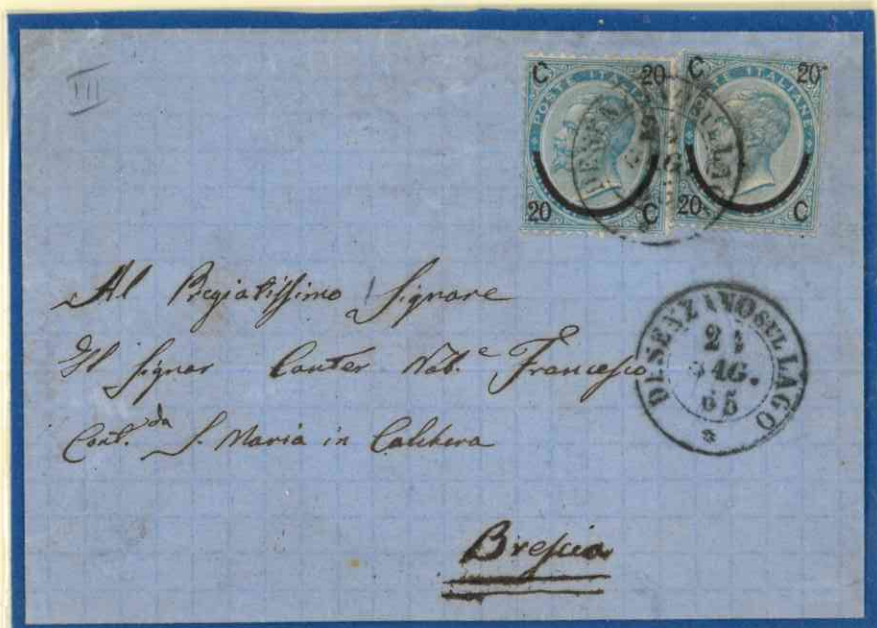 III
C 20
POSTE ITALIANE
20 C
C 20
POSTE ITALIANE
20 C
DESENZANO SUL LAGO
AG.
65
Al Pregiatissimo Signore
Il Signor Nob.e Francesco
Cont.da S. Maria in Calchera
Brescia
DESENZANO SUL LAGO
AG.
65